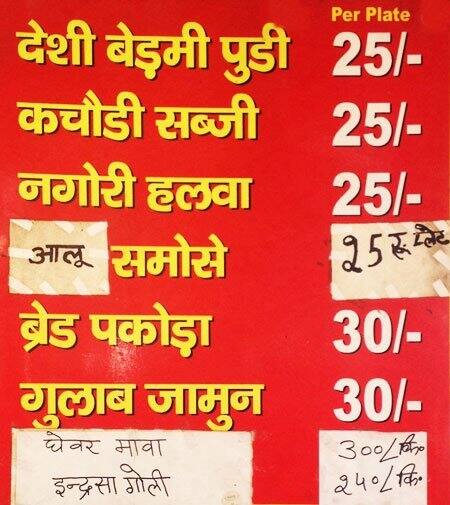 Per Plate
देशी बेड़मी पुडी 25/-
कचौडी सब्जी 25/-
नगोरी हलवा 25/-
आलू समोसे 25 रू प्लेट
ब्रेड पकोड़ा 30/-
गुलाब जामुन 30/-
घेवर मावा 300/कि॰
इन्द्रसा गोली 240/कि॰